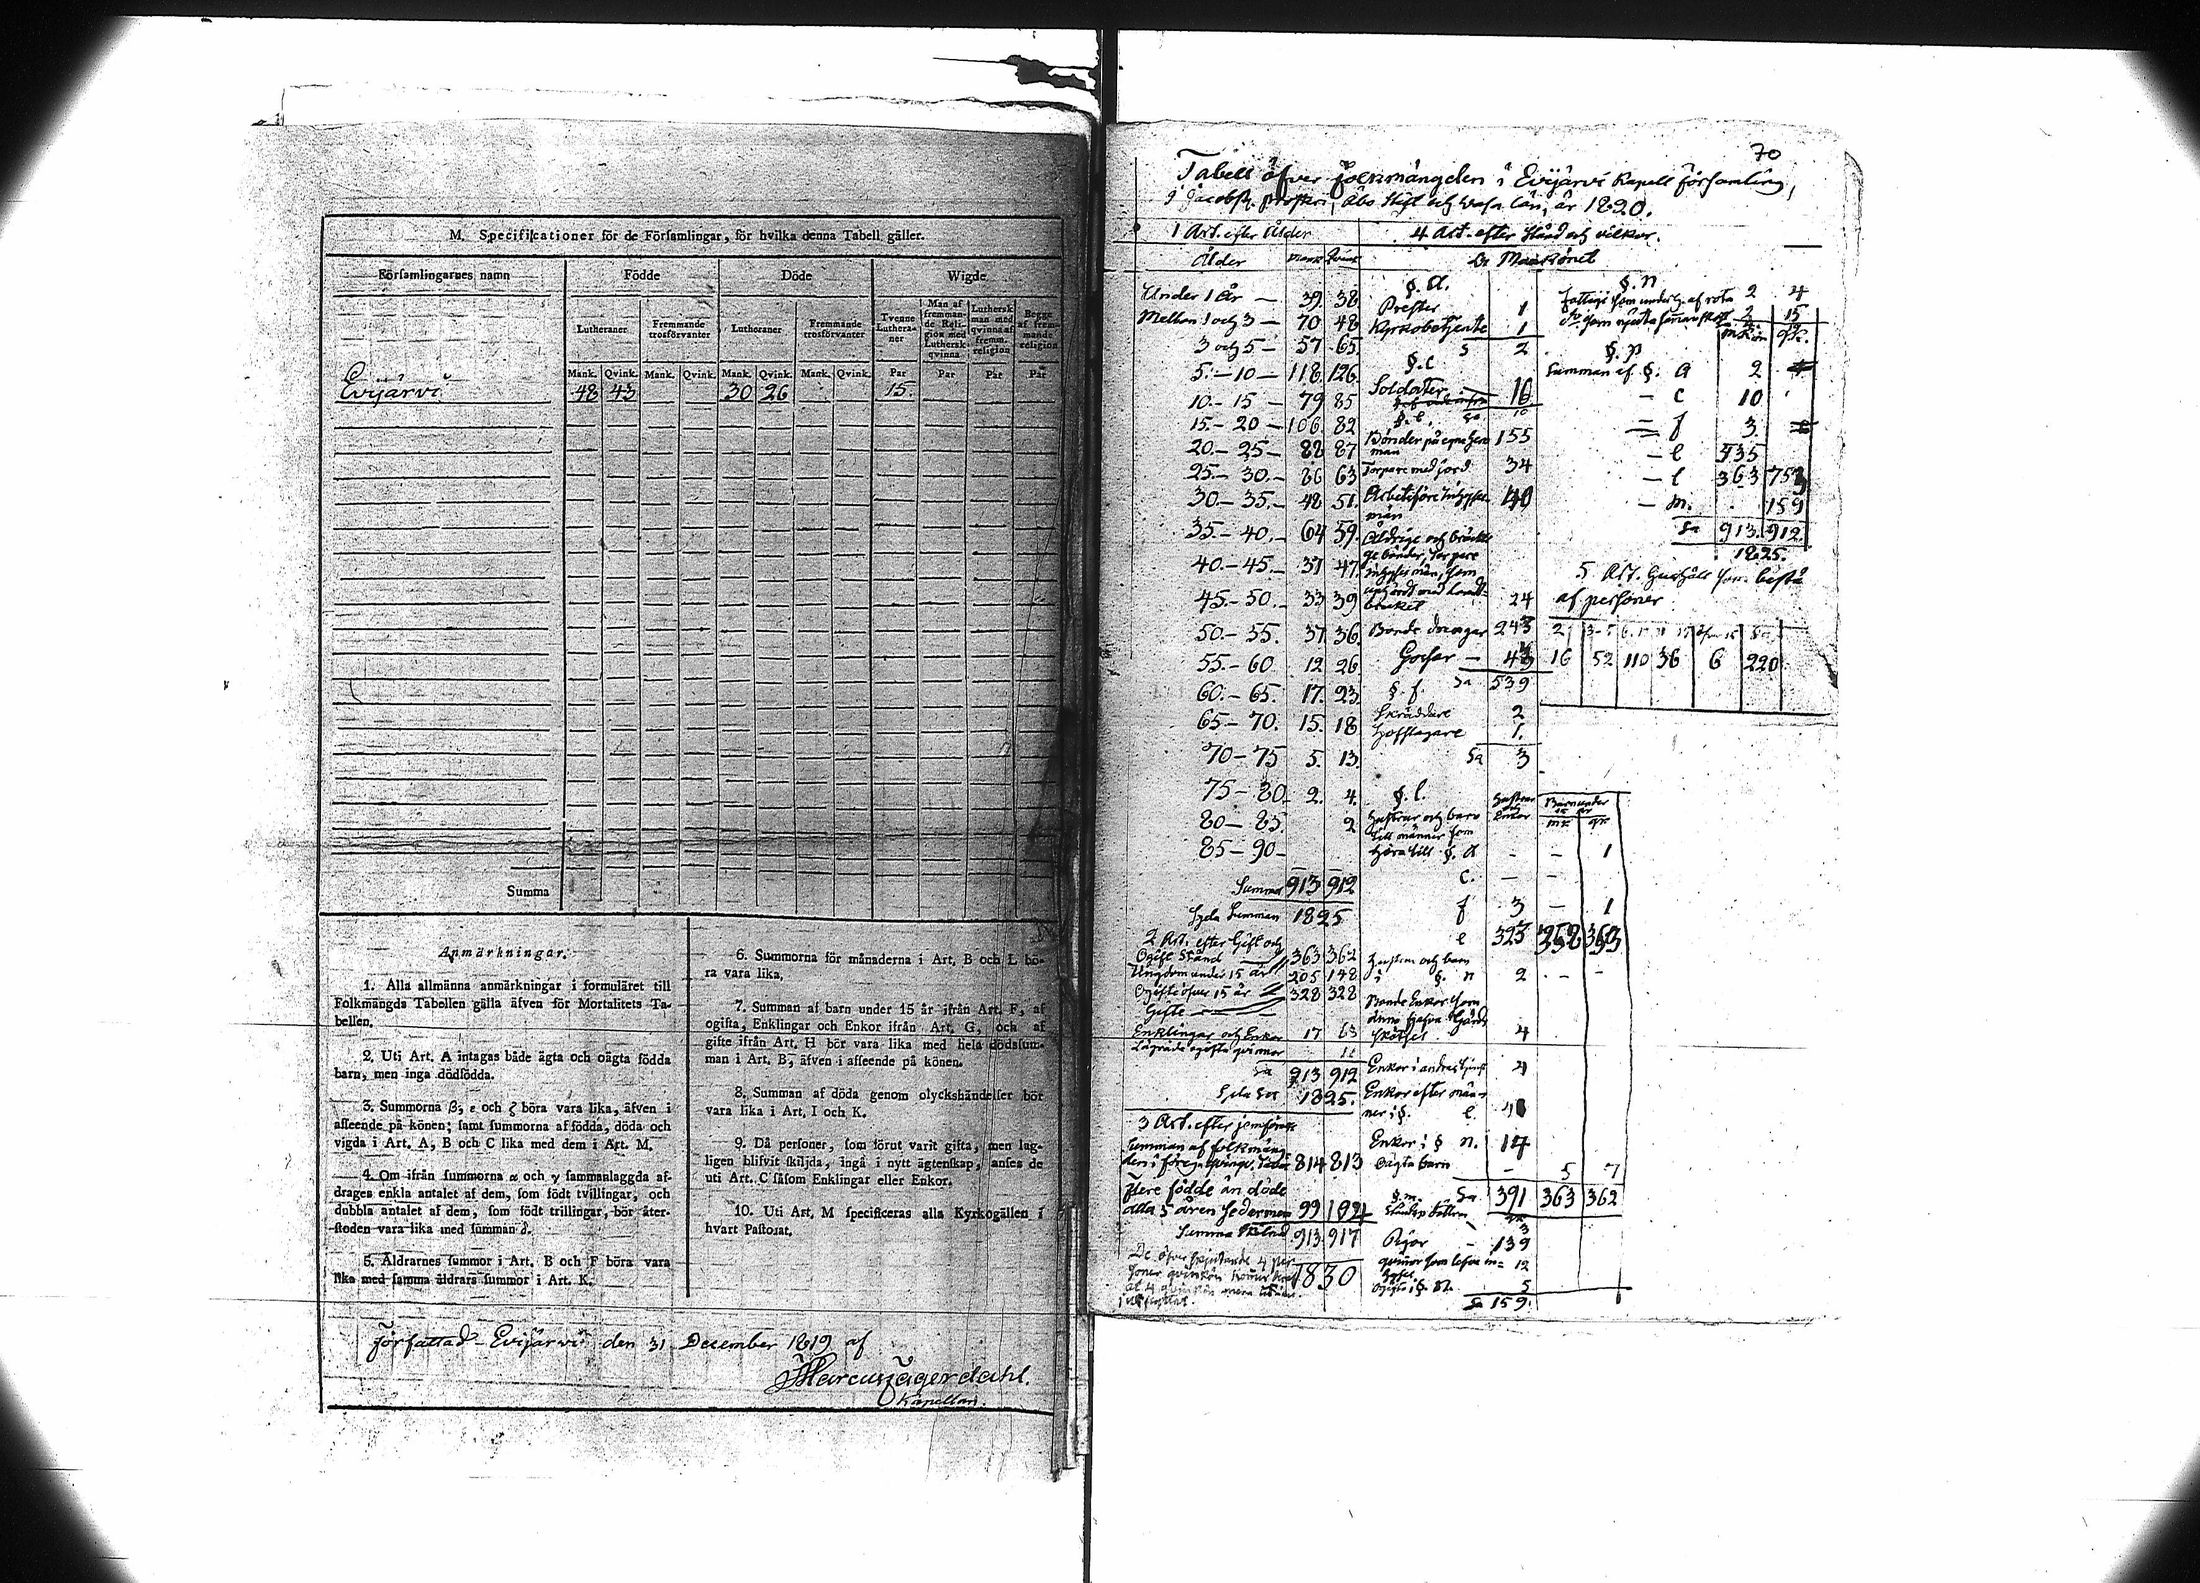 M. Specificationer för de Församlingar, för hvilka denna Tabell gäller.
Församlingarnes namn
Födde
Döde
Wigde
Lutheraner
Fremmande trosförvanter
Lutheraner
Fremmande trosförvanter
Tvenne Luthera-ner
Man af fremman-de Reli-gion med Luthersk qvinna
Luthersk man med qvinna af fremm. religion
Begge af frem-mande religion
Mank. Qvink. Mank. Qvink. Mank. Qvink. Mank. Qvink. Par Par Par Par
Evijärvi 48 43 30 26 15.
Summa
Anmärkningar.
1. Alla allmänna anmärkningar i formuläret till
Folkmängds Tabellen gälla äfven för Mortalitets Ta-
bellen.
2. Uti Art. A intagas både ägta och oägta födda
barn, men inga dödfödda.
3. Summorna β, ε och ζ böra vara lika, äfven i
afseende på könen; samt summorna af födda, döda och
vigda i Art. A, B och C lika med dem i Art. M.
4. Om ifrån summorna α och γ sammanlaggda af-
drages enkla antalet af dem, som födt tvillingar, och
dubbla antalet af dem, som födt trillingar, bör åter-
stoden vara lika med summan δ.
5. Åldrarnes summor i Art. B och F böra vara
lika med samma åldrars summor i Art. K.
6. Summorna för månaderna i Art. B och L bö-
ra vara lika.
7. Summan af barn under 15 år ifrån Art. F, af
ogifta, Enklingar och Enkor ifrån Art. G, och af
gifte ifrån Art. H bör vara lika med hela dödssum-
man i Art. B, äfven i afseende på könen.
8. Summan af döda genom olyckshändelser bör
vara lika i Art. I och K.
9. Då personer, som förut varit gifta, men lag-
ligen blifvit skiljda, ingå i nytt ägtenskap, anses de
uti Art. C såsom Enklingar eller Enkor.
10. Uti Art. M specificeras alla Kyrkogällen i
hvart Pastorat.
Författad Evijärvi den 31 December 1819 af
Marcus Jägerdahl.
Kapellan.
70
Tabell öfver folkmängden i Evijärvi Kapell församling,
i Jacobst. prosteri, Åbo Stift och Wasa län, år 1820.
1 Art. efter Ålder
Ålder Mank Qvink
Under 1 År — 39 38
Mellan 1 och 3 — 70 48
3 och 5 — 57 65
5 — 10 — 118 126
10 — 15 — 79 85
15 — 20 — 106 82
20 — 25 — 82 87
25 — 30 — 86 63
30 — 35 — 48 51
35 — 40 — 64 59
40 — 45 — 37 47
45 — 50 — 33 39
50 — 55. 37 36
55 — 60 12 26
60 — 65. 17. 23
65 — 70. 15. 18
70 — 75 5. 13
75 — 80 2. 4.
80 — 85 2
85 — 90 —
Summa 913 912
Hela Summan 1825
2 Art. efter Gift och
Ogift Stånd 363 362
Ungdom under 15 år 205 148
Ogifte öfver 15 år 328 328
Gifte
Enklingar och Enkor 17 63
Lägrade ogifta qvinnor 11
Sa 913 912
Hela Sa 1825.
3 Art. efter jemförelse
Summan af folkmäng-
den i föreg. 814 813
Flere födde än döde
alla 5 åren sedermera 99 104
Summa 913 917
1830
4 Art. efter Stånd och vilkor.
§. a.
Prester 1
Kyrkobetjente 1
S 2
§. c
Soldater 10
§. e.
Bönder på egna hem
man 155
Torpare med jord 34
Arbetsföre Inhyses
män 40
Åldrige och bräckli
ge bönder, torpare
inhysesmän, som
upphördt med landt-
bruket 24
Bonde drengar 243
Gossar — 43
Sa 539
§. f.
Skräddare 2
Hofslagare 1.
Sa 3
§. l.
Hustrur och Enkor
Barn under 15 år
mk qk
Hustrur och barn
till männer som
höra till §. a - - 1
c. - -
f 3 - 1
e 323
Hustrur och barn
i §. n 2 - -
Bonde Enkor som
skötsel 4
Enkor i andras tjenst 4
Enkor efter män-
ner i §. e.
Enkor i § n. 14
Oägta barn - 5 7
Sa 391 363 362
§. m.
Pigor - 139
qvinnor som lefva in-
hyses 12
Ogifte i §. n. 5
Sa 159.
§. n
Fattige som underh. af rota 2 4
§. p
Summan af §. a 2
— c 10
— f 3
— e 535
— l 363 753
— m. 159
Sa 913 912
1825.
5 Art. Hushåll som bestå
af personer
16 52 110 36 6 220